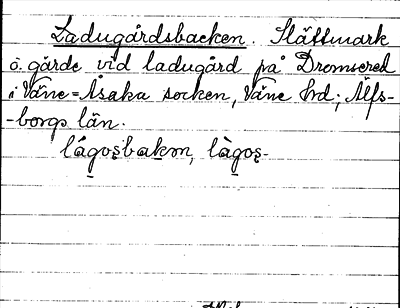 Ladugårdsbacken. Slättmark
o. gärde vid ladugård på Dromsered
i Väne-Åsaka socken, Väne hrd; Älfs-
-borgs län.
lágos̨bakɷn, làgos̨-